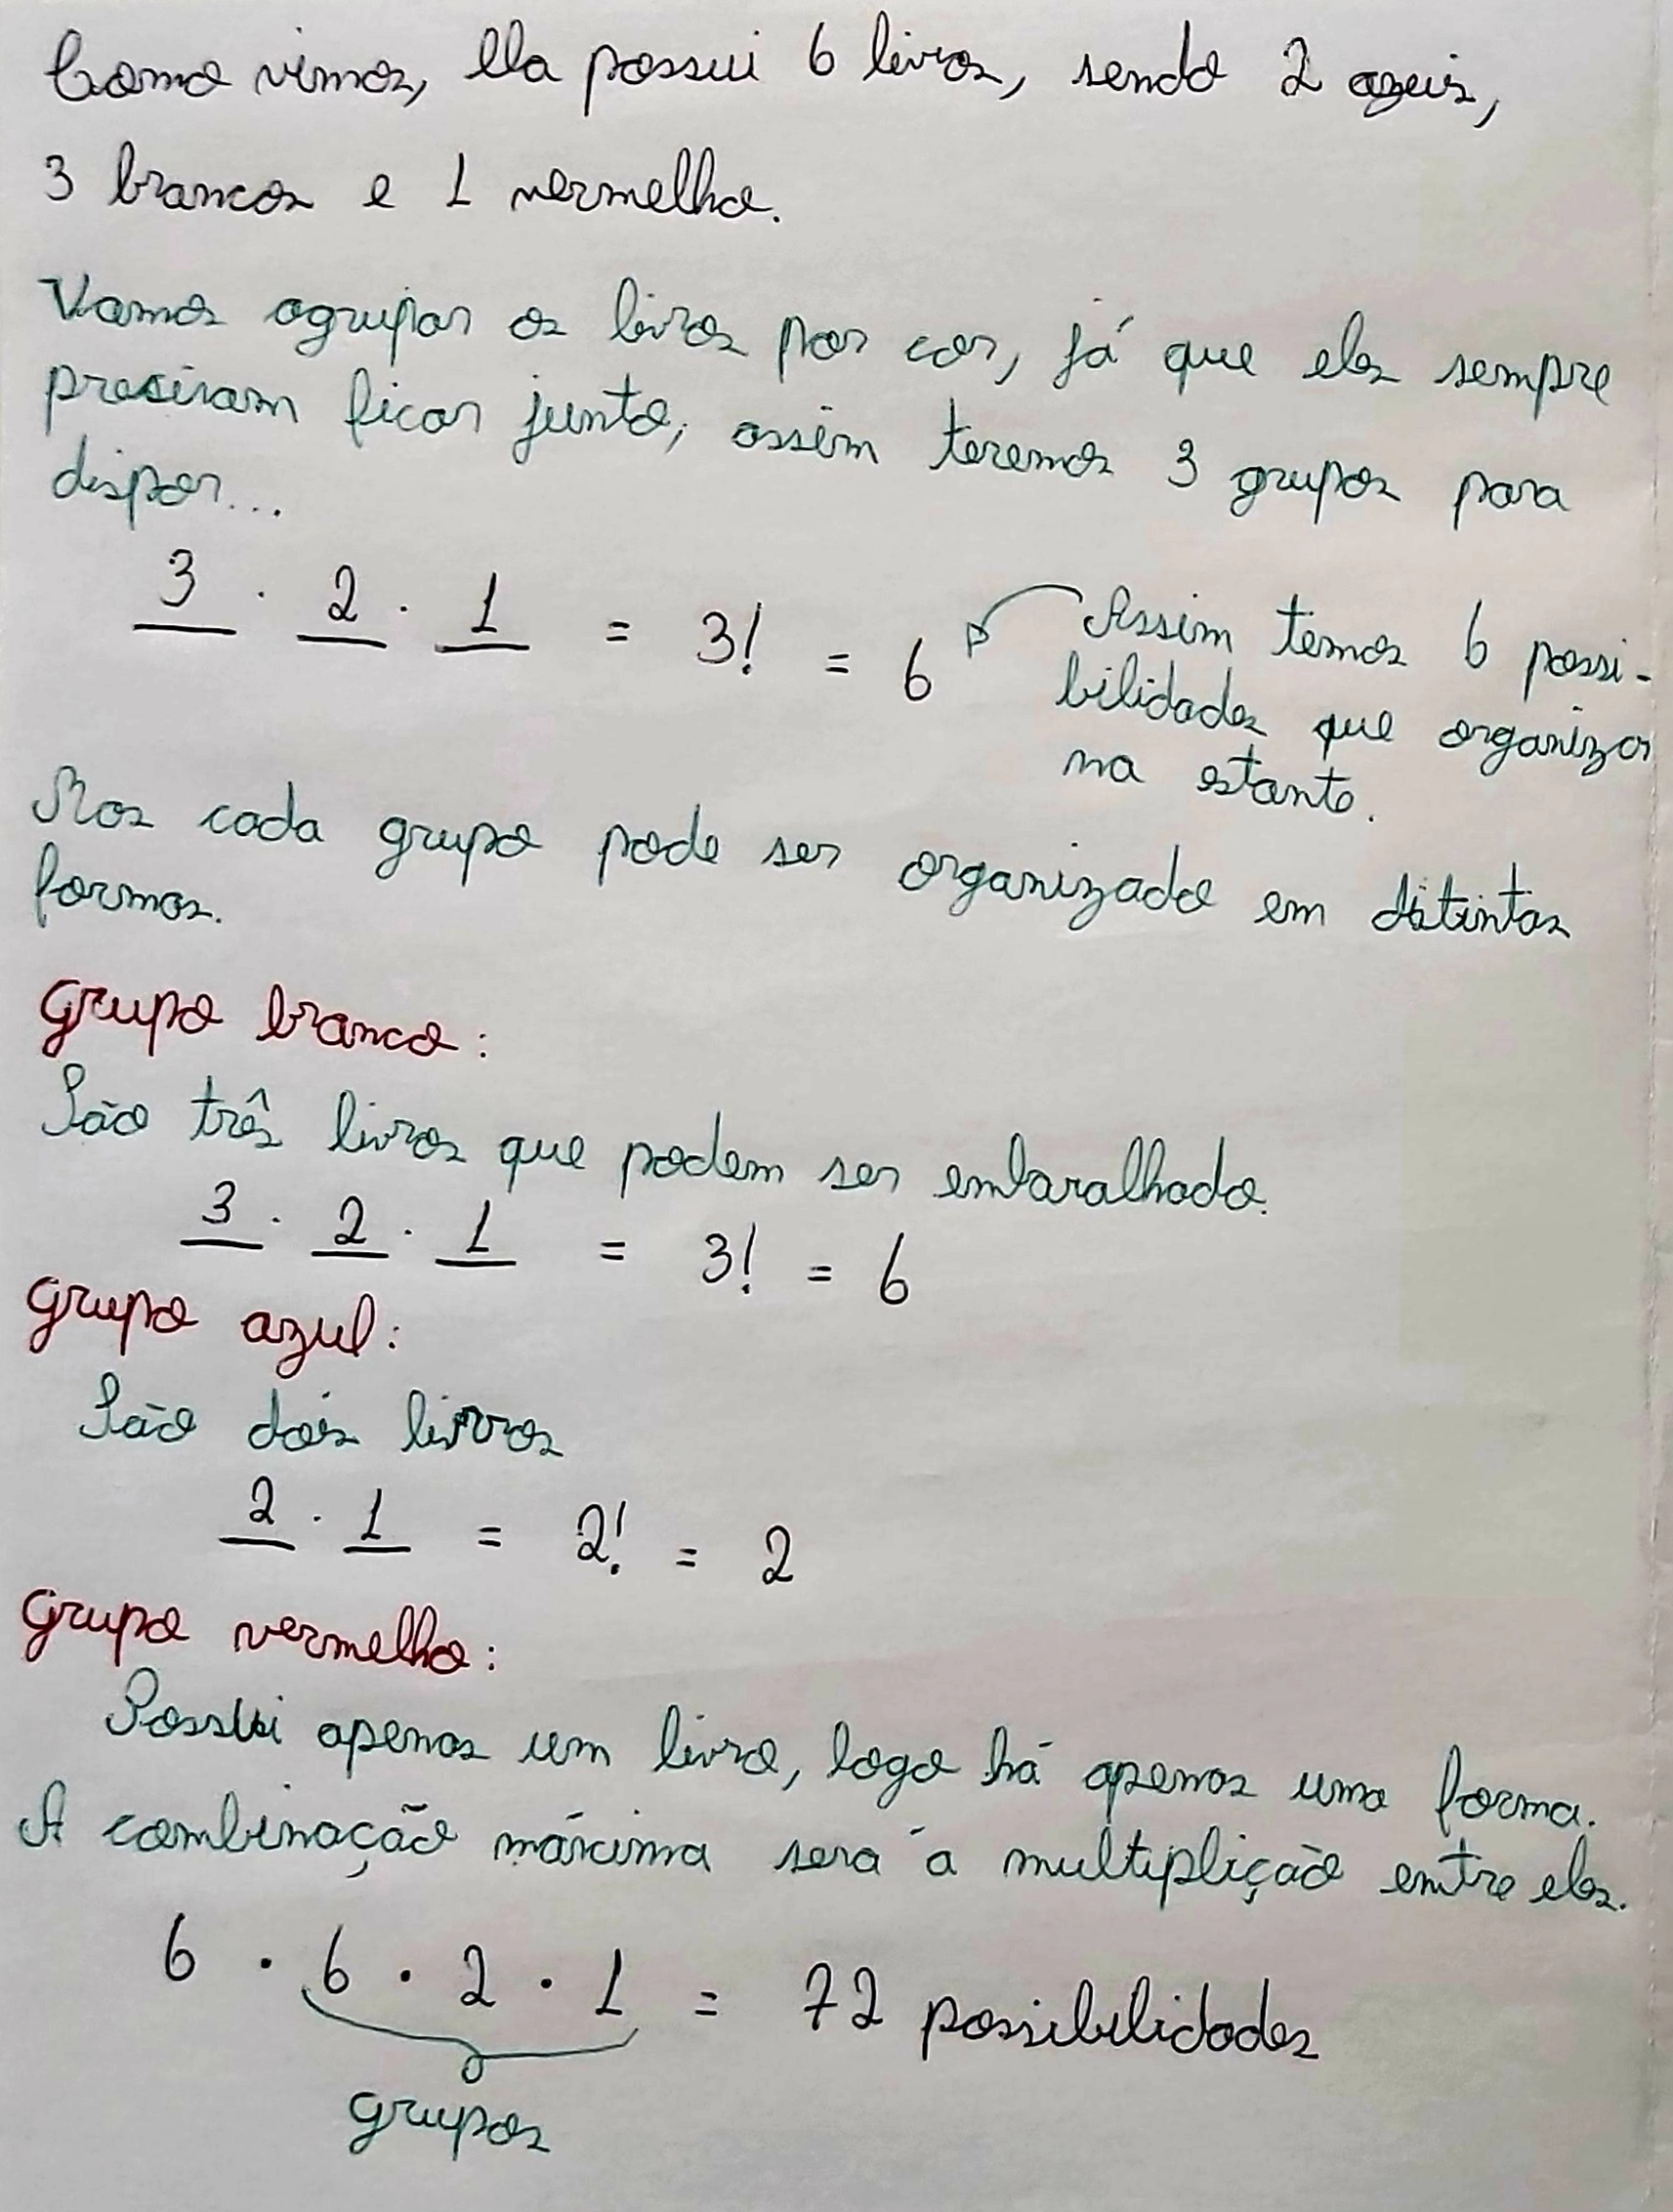 Como vimos, Ela possui 6 livros, sendo 2 azuis,
3 brancos e 1 vermelho.
Vamos agrupar os livros por cor, já que eles sempre
precisam ficar junto, assim teremos 3 grupos para
dispor...
3 . 2 . 1 = 3! = 6
Assim temos 6 possi-
bilidades que organizar
na estante.
Mas cada grupo pode ser organizado em distintas
formas.
grupo branco:
São três livros que podem ser embaralhado.
3 . 2 . 1 = 3! = 6
grupo azul:
São dois livros
2 . 1 = 2! = 2
grupo vermelho:
Possui apenas um livro, logo há apenas uma forma.
A combinação máxima será a multiplição entre eles.
6 . 6 . 2 . 1 = 72 possibilidades
grupos